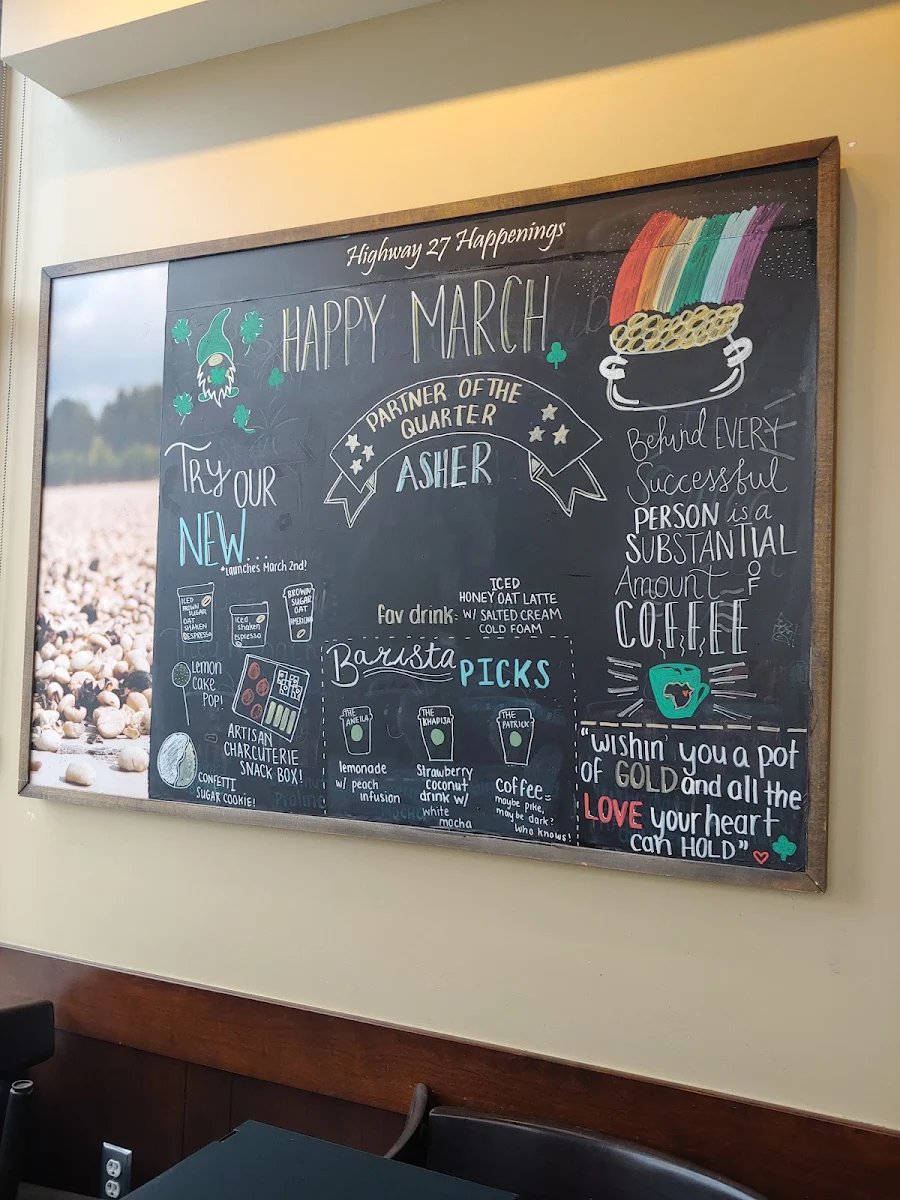 Highway 27 Happenings
HAPPY MARCH
PARTNER OF THE
QUARTER
ASHER
fav drink:
ICED
HONEY OAT LATTE
W/ SALTED CREAM
COLD FOAM
TRY OUR
NEW...
*launches March 2nd!
ICED
BROWN
SUGAR
OAT
SHAKEN
ESPRESSO
iced
shaken
espresso
BROWN
SUGAR
OAT
AMERICANO
Lemon
CAKE
POP!
ARTISAN
CHARCUTERIE
SNACK BOX!
CONFETTI
SUGAR COOKIE!
Barista PICKS
THE
lemonade
w/ peach
infusion
THE
KHADIJA
Strawberry
coconut
drink w/
white
mocha
THE
PATRICK
Coffee=
maybe pike,
maybe dark?
who knows!
Behind EVERY
Successful
PERSON is a
SUBSTANTIAL
Amount OF
COFFEE
"Wishin' you a pot
of GOLD and all the
LOVE your heart
can HOLD"